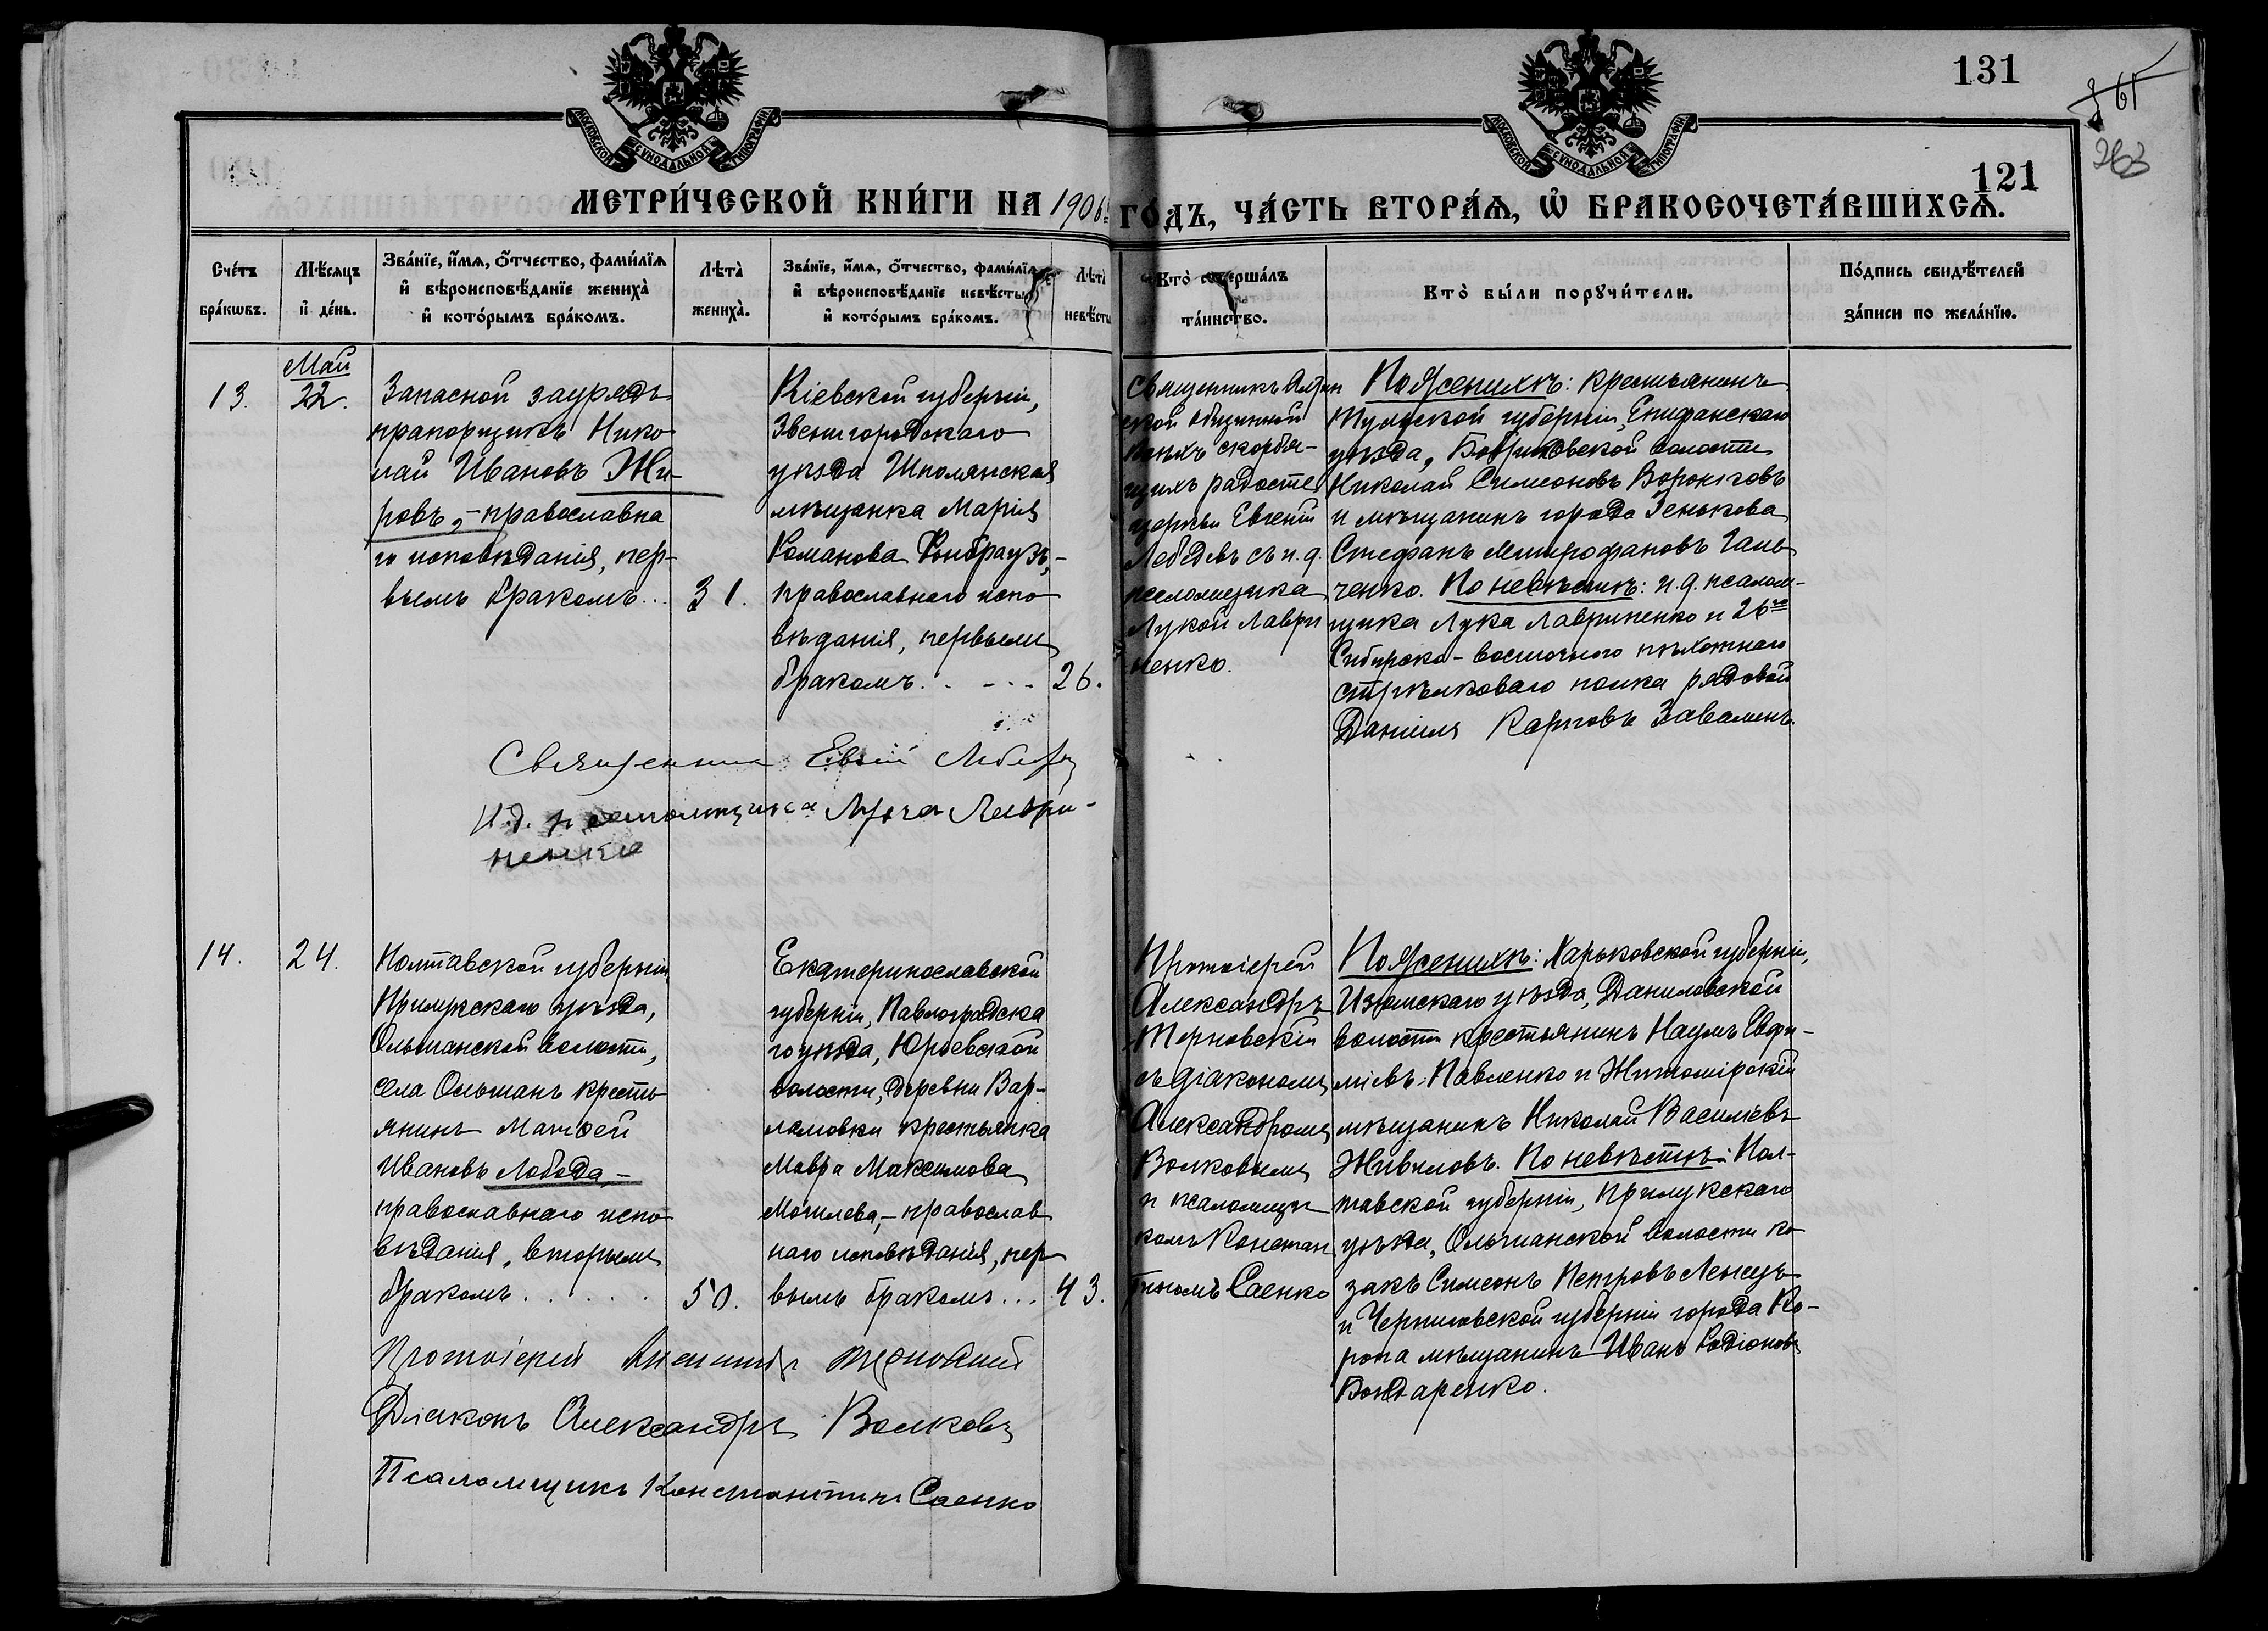 131
361
263
121
МОСКОВСКОЙ СѴНОДАЛЬНОЙ ТИПОГРАФІИ
МОСКОВСКОЙ СѴНОДАЛЬНОЙ ТИПОГРАФІИ
МЕТРИ́ЧЕСКОЙ КНИ́ГИ НА 1906 ГО́ДЪ, ЧА́СТЬ ВТОРА́Я, Ѿ БРАКОСОЧЕТА́ВШИХСЯ.
Сче́тъ
бра́кωвъ.
Мѣ́сяцъ
и҆ де́нь.
Зва́нїе, и҆́мя, ѻ҆́тчество, фами́лїя
и҆ вѣроисповѣ́данїе жениха̀
и҆ кото́рымъ бра́комъ.
Лѣта̀
жениха̀.
Зва́нїе, и҆́мя, ѻ҆́тчество, фами́лїя
и҆ вѣроисповѣ́данїе невѣ́сты
и҆ кото́рымъ бра́комъ.
Лѣта̀
невѣ́сты
Кто̀ соверша́лъ
та́инство.
Кто̀ бы́ли порꙋчи́тели.
По́дпись свидѣ́телей
за́писи по жела́нїю.
13.
Май
22.
Запасной зауредъ
прапорщикъ Нико
лай Ивановъ Жи-
ровъ,-православна
го исповѣданія, пер-
вымъ бракомъ...
31.
Кіевской губерніи,
Звенигородскаго
уѣзда Шполянская
мѣщанка Марія
Романова,-
православнаго испо
вѣданія, первымъ
бракомъ. . - - .
26.
Священникъ
ской общинной
Всѣхъ скорбя-
щихъ радосте
церкви Евгеній
Лебедевъ съ и.д.
псаломщика
Лукой Лаври
ненко.
По Женихѣ: крестьянинъ
Тульской губерніи, Епифанскаго
уѣзда, Бобриковской волости
Николай Симеоновъ
и мѣщанинъ города Зенькова
Стефанъ Митрофановъ Галь
ченко. По невѣстѣ: и.д. псалом-
щика Лука Лавриненко и 26го
Сибирско-восточного пѣхотнаго
стрѣлковаго полка рядовой
Даніилъ Карповъ
Священникъ Евгній Лебедевъ
И.д. псаломщика Лука Лаври-
ненко
14.
24.
Полтавской губерніи,
Прилукскаго уѣзда,
Ольшанской волости,
села Ольшанъ кресть
янинъ Матѳей
Ивановъ Лобода,-
православнаго испо
вѣданія, вторымъ
бракомъ. . . . . .
50.
Екатеринославской
губерніи, Павлоградска
го уѣзда, Юрьевской
волости, деревни Вар-
ламовки крестьянка
Мавра Максимова
Могилева,-православ
наго исповѣданія, пер
вымъ бракомъ...
43.
Протоіерей
Александръ
Терновскій
съ діакономъ
Александромъ
Волковымъ
и псаломщи
комъ Констан
тиномъ Саенко
По Женихѣ: Харьковской губерніи,
Изюмскаго уѣзда, Даниловской
волости крестьянинъ Наумъ Евфи-
міевъ Павленко и Житомірскій
мѣщанинъ Николай Василіевъ
Живиловъ. По невѣстѣ: Пол-
тавской губерніи, Прилукскаго
уѣзда, Ольшанской волости ко
закъ Симеонъ Петровъ
и Черниговской губерніи города Ко-
ропа мѣщанинъ Иванъ Родіоновъ
Бондаренко.
Протоіерей Александръ Терновскій
Діаконъ Александръ Волковъ
Псаломщикъ Константинъ Саенко